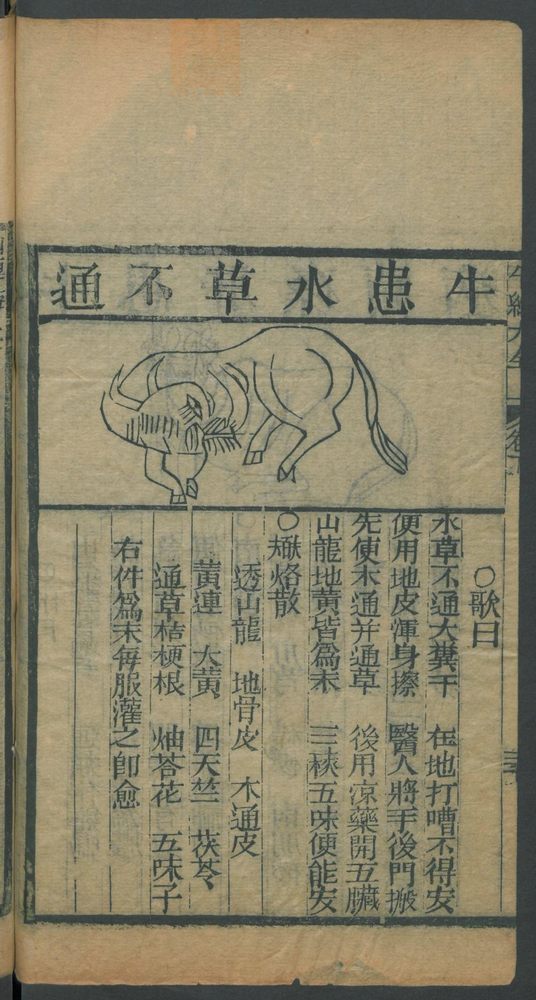 牛患水草不通
○歌曰
水草不通大糞干　在地打嘈不得安
便用地皮渾身擦　醫人將手後門搬
先使木通并通草　後用凉藥開五臟
山龍地黃皆爲末　三棱五味便能安
○烙散
透山龍　地骨皮　木通皮
黃連　大黃　四天竺　茯苓
通草桔梗根　花　五味子
右件爲末每服灌之卽愈